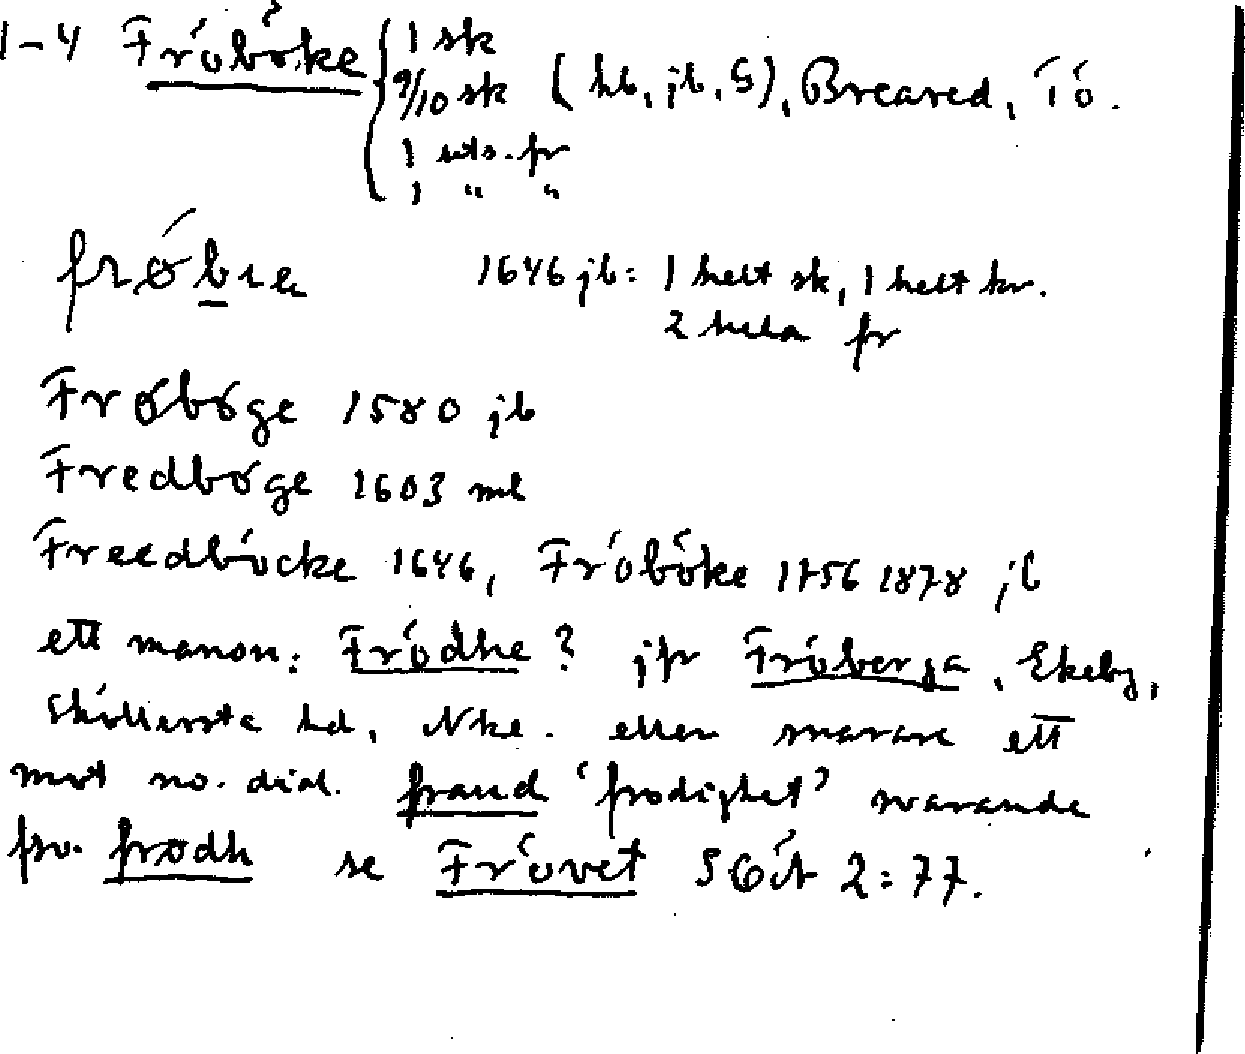 1-4 Fröböke { 1 sk
9/10 sk (hb, jb, G), Breared, Tö.
1 uts. fr
1 " "
1646 jb: 1 helt sk, 1 helt kr.
2 hela fr
Frøbøge 1580 jb
Fredbøge 1603 ml
Freedböcke 1646, Fröböke 1756 1878 jb
ett mansn. Frödhe? jfr Fröberga, Ekeby,
Sköllersta hd, Nke. eller snarare ett
mot no. dial. fraud 'frodighet' svarande
fsv. frødh se Frövet SGÖt 2:77.